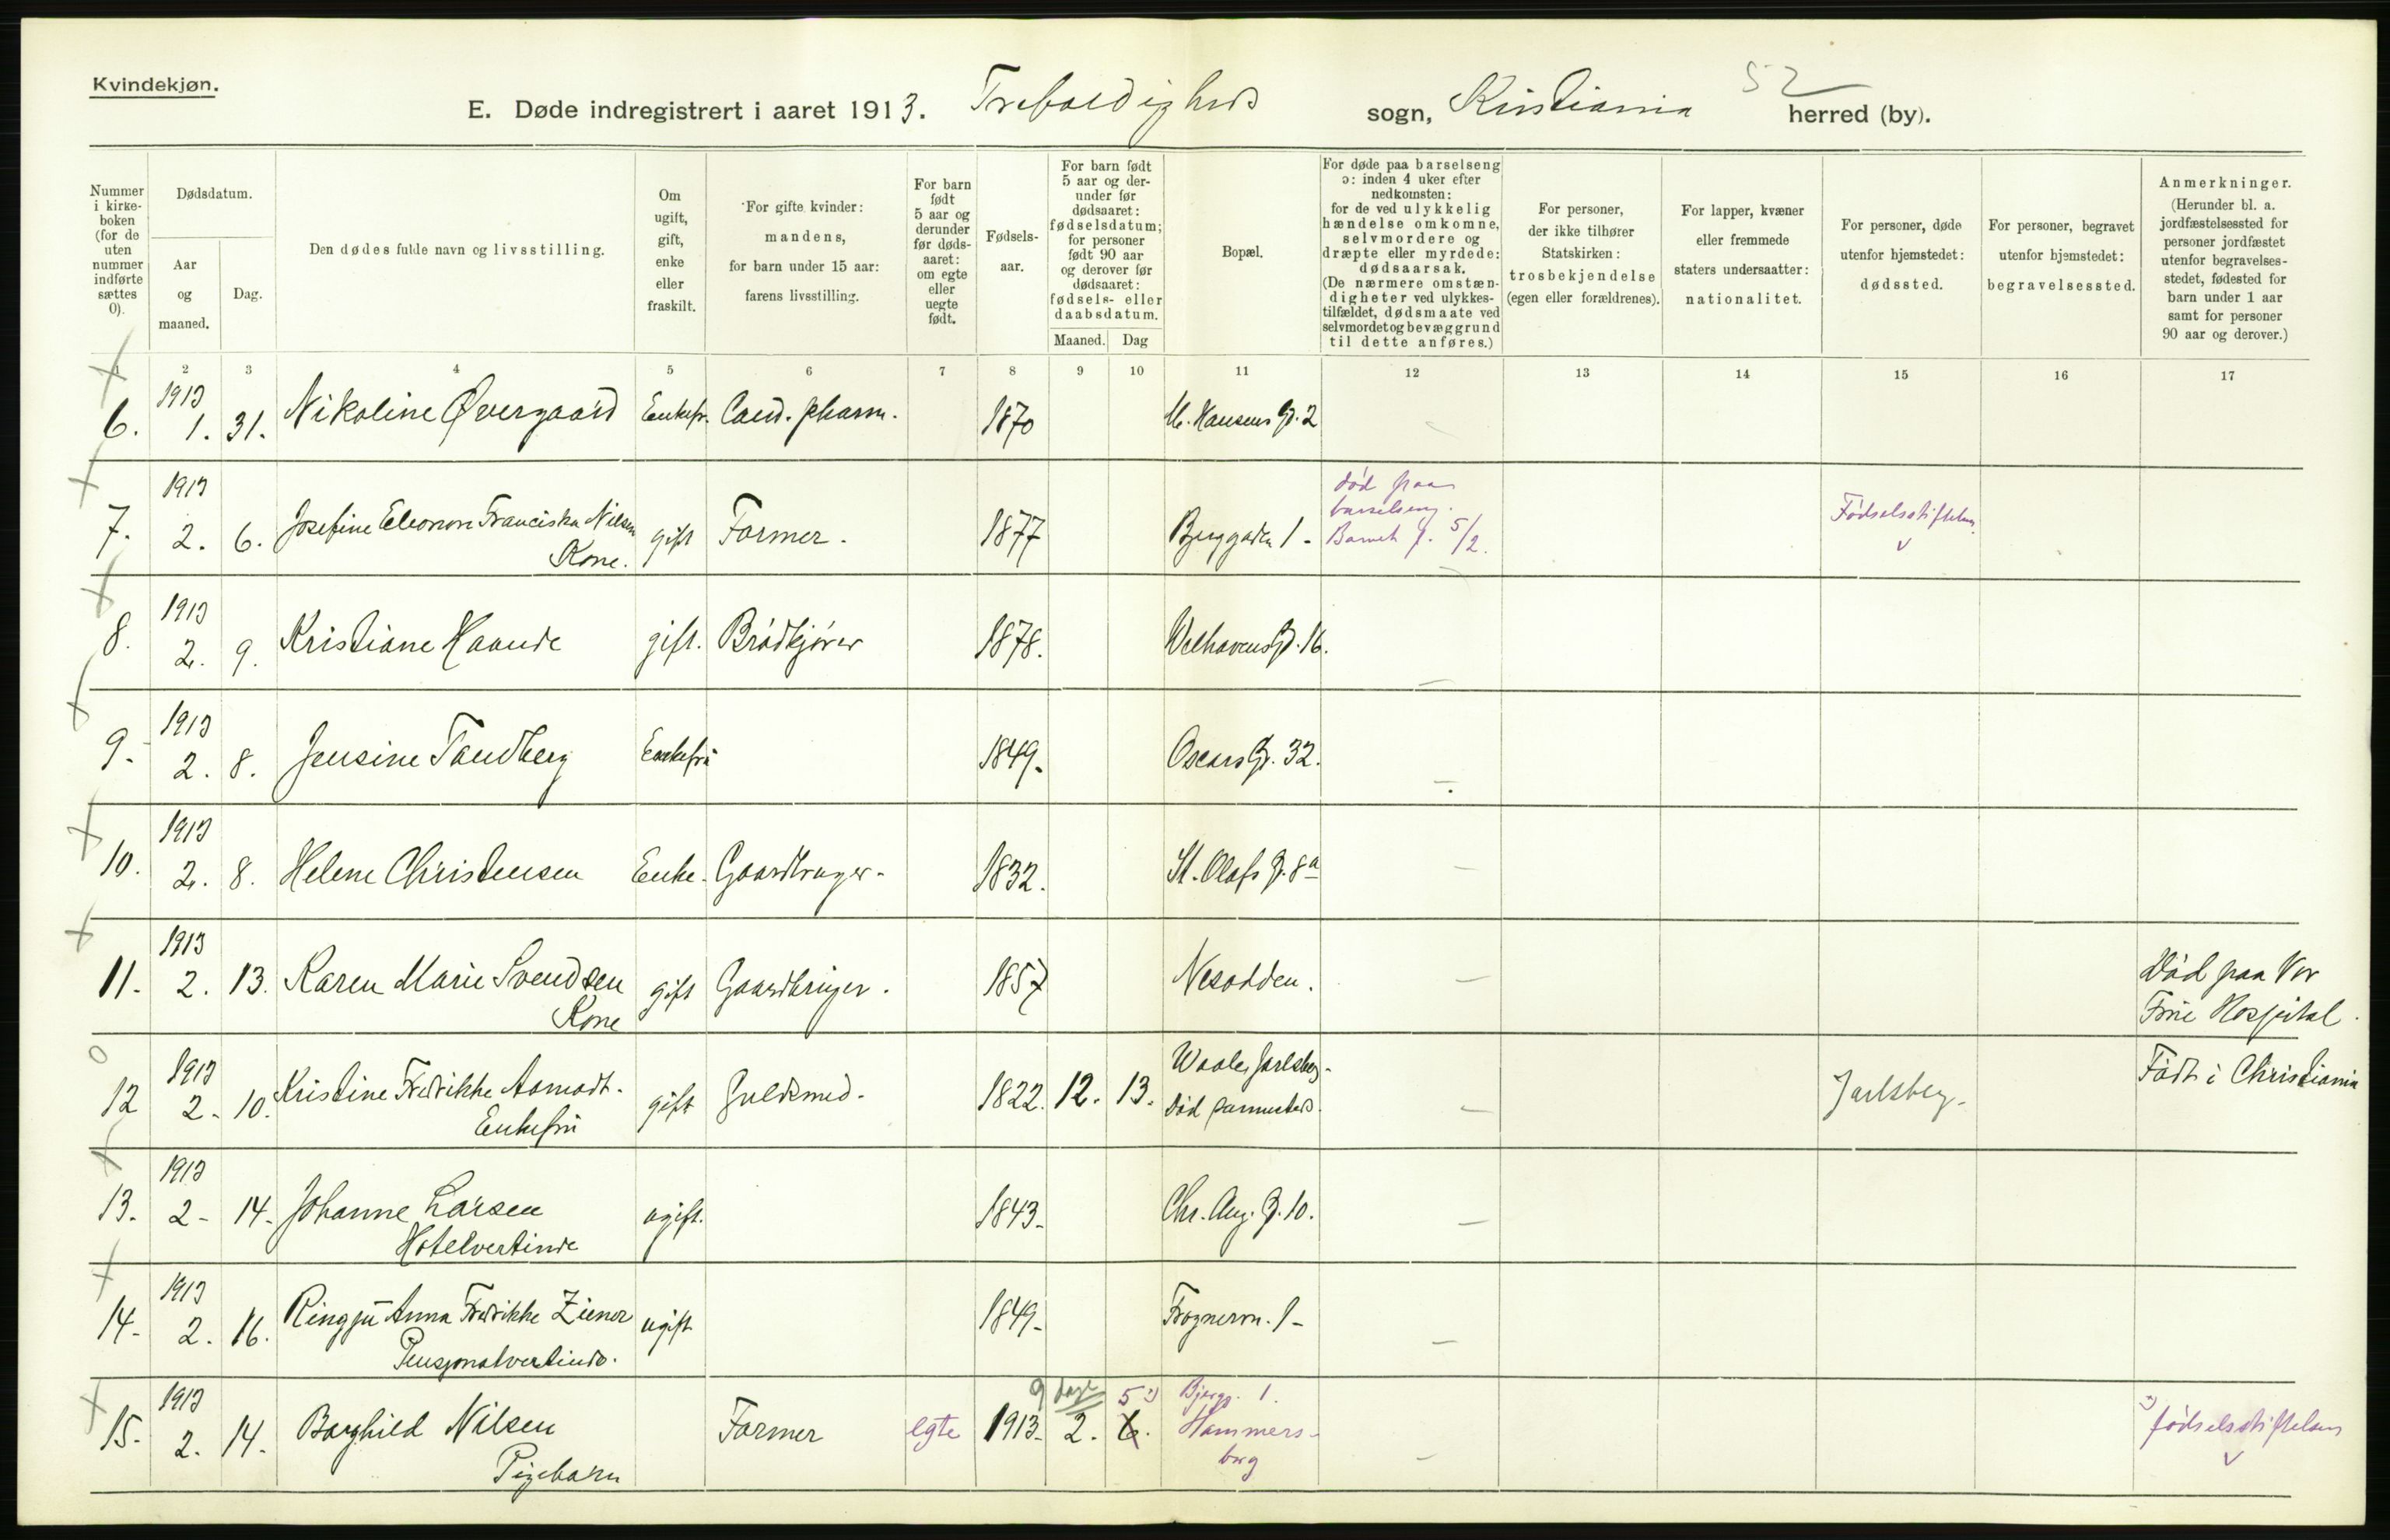 Kvindekjøn.
52
E. Døde indregistrert i aaret 1913. Trefoldigheds sogn, Kristiania herred (by).
Nummer i kirkeboken (for de uten nummer indførte sættes 0).
Dødsdatum.
Aar og maaned.
Dag.
Den dødes fulde navn og livsstilling.
Om ugift, gift, enke eller fraskilt.
For gifte kvinder: mandens, for barn under 15 aar: farens livsstilling.
For barn født 5 aar og derunder før dødsaaret: om egte eller uegte født.
Fødselsaar.
For barn født 5 aar og derunder før dødsaaret: fødselsdatum; for personer født 90 aar og derover før dødsaaret: fødsels- eller daabsdatum.
Maaned. Dag
Bopæl.
For døde paa barselseng ɔ: inden 4 uker efter nedkomsten: for de ved ulykkelig hændelse omkomne, selvmordere og dræpte eller myrdede: dødsaarsak. (De nærmere omstændigheter ved ulykkestilfældet, dødsmaate ved selvmordet og bevæggrund til dette anføres.)
For personer, der ikke tilhører Statskirken: trosbekjendelse (egen eller forældrenes).
For lapper, kvæner eller fremmede staters undersaatter: nationalitet.
For personer, døde utenfor hjemstedet: dødssted.
For personer, begravet utenfor hjemstedet: begravelsessted.
Anmerkninger. (Herunder bl. a. jordfæstelsessted for personer jordfæstet utenfor begravelsesstedet, fødested for barn under 1 aar samt for personer 90 aar og derover.)
1 2 3 4 5 6 7 8 9 10 11 12 13 14 15 16 17
6. 1913 1. 31. Nikoline Øvergaard Enkefr. Cand. pharm. 1870 M. Hansens G. 2
7. 1913 2. 6. Josefine Eleonora Franciska Nilsen gift Farmer. 1877 Bjerggaden 1 - død paa barselseng. Barnet f. 5/2. Fødselsstiftelsen
Kone.
8. 1913 2. 9. Kristiane Haande gift. Brødkjører 1878. Welhavens G. 16.
9. 1913 2. 8. Jensine Tandberg Enkefru 1849. Oscars G. 32.
10. 1913 2. 8. Helene Christensen Enke. Gaardbruger. 1832. St. Olafs G. 8a
11. 1913 2. 13. Karen Marie Svendsen gift Gaardbruger. 1857 Nesodden. Død paa Vor
Kone Frue Hospital.
12 1913 2. 10. Kristine Fredrikke Aamodt. gift Guldsmed. 1822. 12. 13. Waale, Jarlsberg. Død sammesteds. Jarlsberg. Født i Christiania
Enkefru
13. 1913 2 - 14. Johanne Larsen ugift. 1843. Chr. Aug. G. 10.
Hotelvertinde
14. 1913 2. 16. Ringju Anna Fredrikke Ziener ugift 1849. Frognerv. 1 -
Pensjonatvertinde.
15. 1913 2. 14. Borghild Nilsen Farmer egte 1913. 9 dage 2. 5 x) 6. Bjergg. 1. Hammersborg x) fødselsstiftelsen
Pigebarn